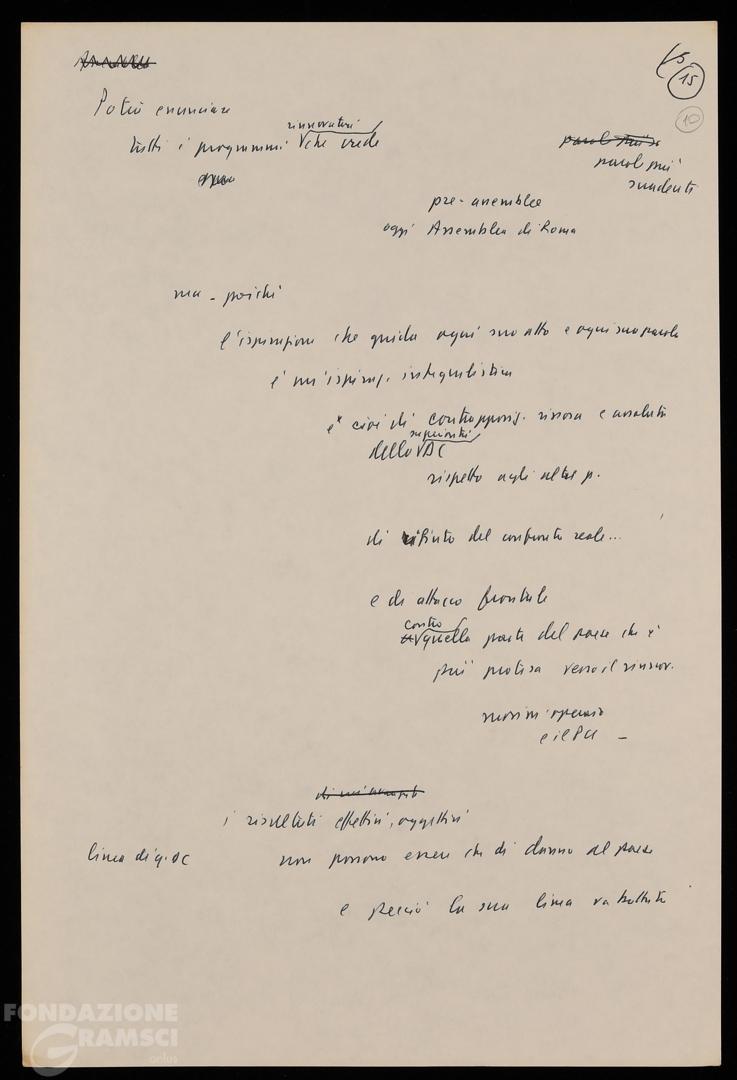 15
15
10
Potrà enunciare
rinnovatori
tutti i programmi che crede
parole più
suadenti
pre-assemblee
oggi Assemblea di Roma
ma - poichè
l'ispirazione che guida ogni suo atto e ogni sua parola
è un'ispiraz. integralistica
e cioè di contrapposiz. rissosa e assoluta
superiorità
della DC
rispetto agli altri p.
di rifiuto del confronto reale...
e di attacco frontale
contro
quella parte del paese che è
più protesa verso il rinnov.
movim operaio
e il PCI -
i risultati effettivi, oggettivi
linea di q. DC non possono essere che di danno al paese
e perciò la sua linea va battuta
FONDAZIONE
GRAMSCI
onlus